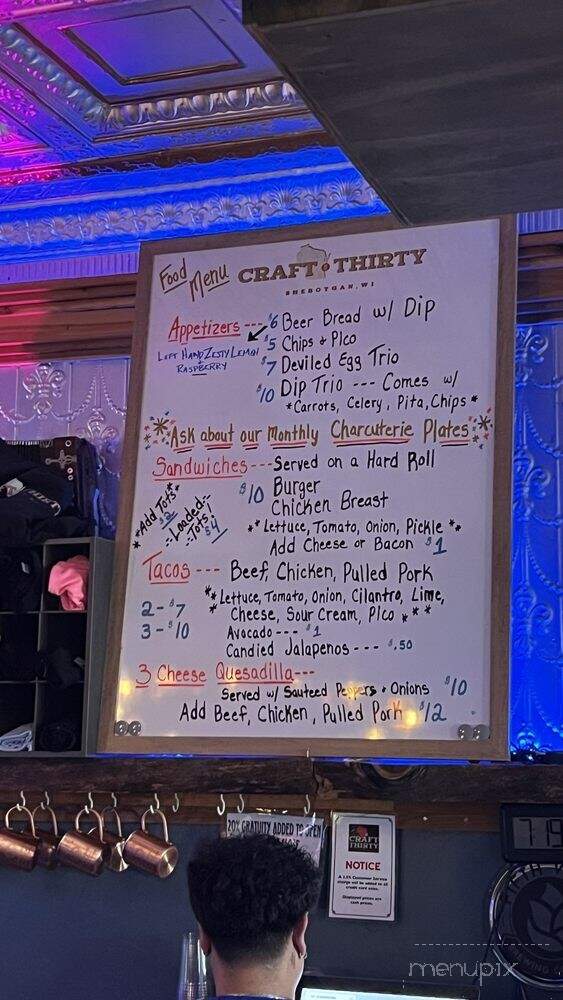 Food Menu
CRAFT THIRTY
SHEBOYGAN, WI
Appetizers --- $6 Beer Bread w/ Dip
Left Hand Zesty Lemon
Raspberry
$5 Chips & Pico
$7 Deviled Egg Trio
$10 Dip Trio --- Comes w/
*Carrots, Celery, Pita, Chips*
*Ask about our Monthly Charcuterie Plates*
Sandwiches --- Served on a Hard Roll
$10 Burger
Chicken Breast
*Add Tots* $2
-:-Loaded-:-
-:-Tots!
$4
**Lettuce, Tomato, Onion, Pickle**
Add Cheese or Bacon $1
Tacos --- Beef, Chicken, Pulled Pork
2 - $7
3 - $10
**Lettuce, Tomato, Onion, Cilantro, Lime,
* Cheese, Sour Cream, Pico ***
Avocado --- $1
Candied Jalapenos --- $.50
3 Cheese Quesadilla ---
Served w/ Sauteed Peppers & Onions $10
Add Beef, Chicken, Pulled Pork $12
20% GRATUITY ADDED TO OPEN
CRAFT
THIRTY
NOTICE
A 3.5% Customer Service
charge will be added to all
credit card sales.
Displayed prices are
cash prices.
menupix